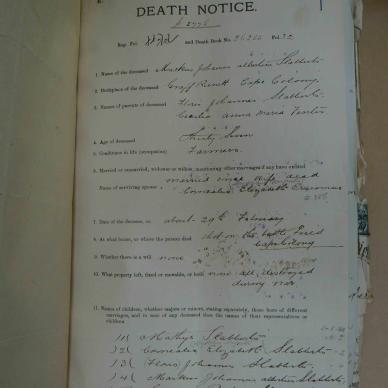 DEATH NOTICE.
Reg. Fol. and Death Book No. Fol. 32
1. Name of the deceased Markus Johannes albertus Slabberts
2. Birthplace of the deceased Graaff Reinett Cape Colony
3. Names of parents of deceased Floris Johannes Slabberts
Cecilia Anna Maria Venter
4. Age of deceased Thirty Seven
5. Conditions in life (occupation) Farmer
6. Married or unmarried, widower or widow, mentioning other marriages if any have existed
married since wife dead
Name of surviving spouse Cornealea Elizabeth Erasmus
7. Date of the decease, on about 29th February
8. At what house, or where the person died died on the battle Field
Cape Colony
9. Whether there is a will none
10. What property left, fixed or movable, or both none all destroyed
during war
11. Names of children, whether majors or minors, stating separately, those born of different
marriages, and in case of any deceased then the names of their representatives or
children
1( Mathys Slabberts
2( Cornealea Elizabeth Slabberts
3( Floris Johannes Slabberts
4( Markus Johannes albertus Slabberts